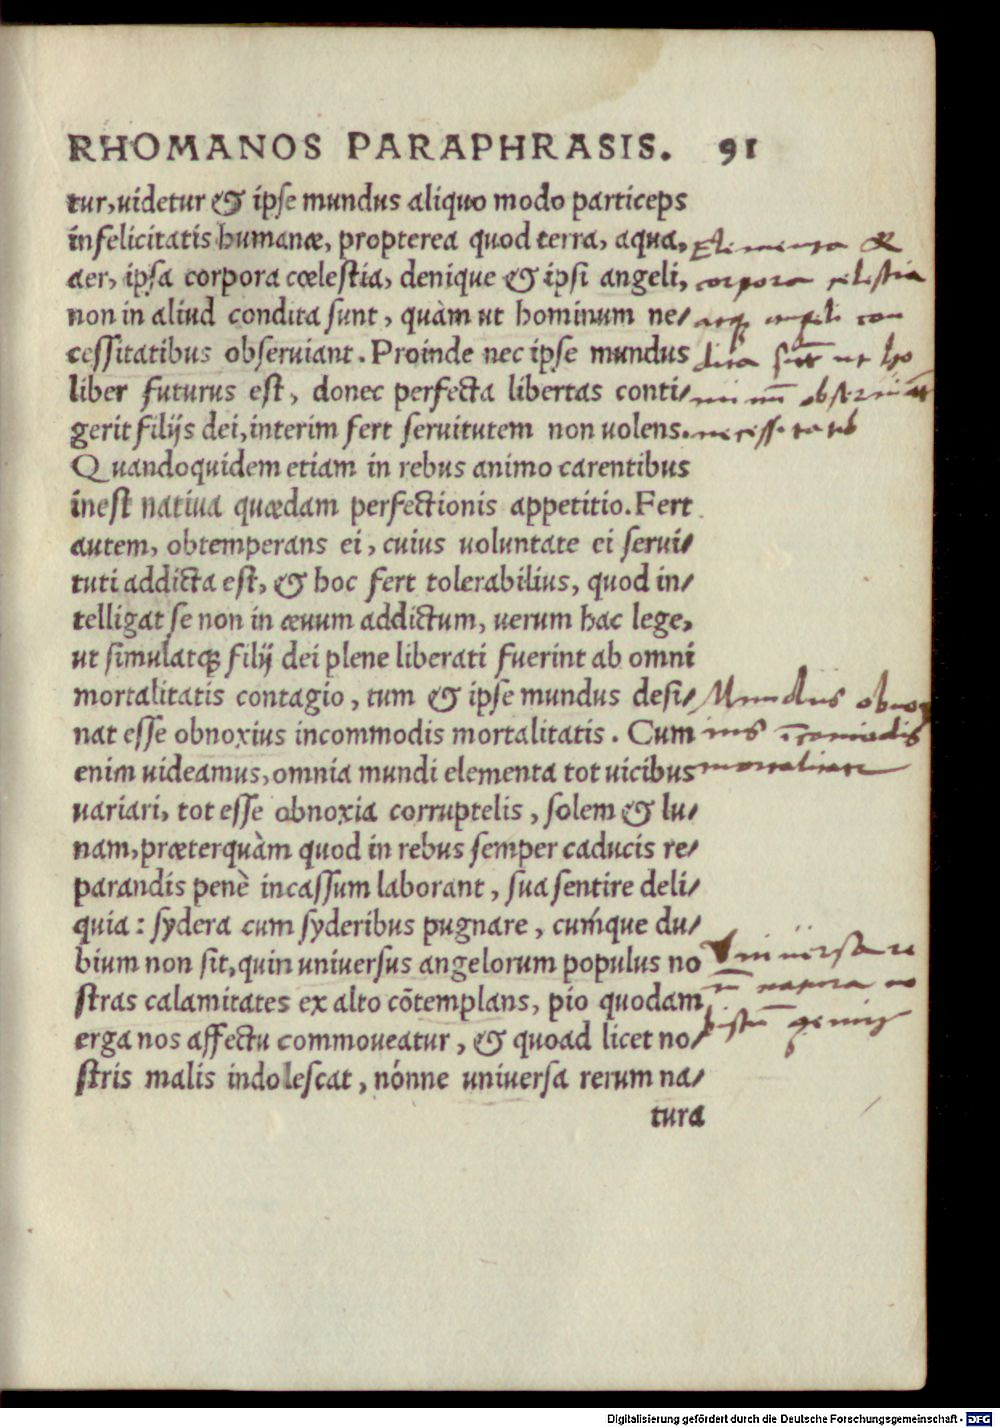 RHOMANOS PARAPHRASIS. 91
tur, uidetur & ipse mundus aliquo modo particeps
infelicitatis humanæ, propterea quod terra, aqua,
aer, ipsa corpora cœlestia, denique & ipsi angeli,
non in aliud condita sunt, quàm ut hominum ne/
cessitatibus obseruiant. Proinde nec ipse mundus
liber futurus est, donec perfecta libertas conti/
gerit filijs dei, interim fert seruitutem non uolens.
Quandoquidem etiam in rebus animo carentibus
inest natiua quædam perfectionis appetitio. Fert
autem, obtemperans ei, cuius uoluntate ei serui/
tuti addicta est, & hoc fert tolerabilius, quod in/
telligat se non in æuum addictum, uerum hac lege,
ut simulatq; filij dei plene liberati fuerint ab omni
mortalitatis contagio, tum & ipse mundus desi/
nat esse obnoxius incommodis mortalitatis. Cum
enim uideamus, omnia mundi elementa tot uicibus
uariari, tot esse obnoxia corruptelis, solem & lu/
nam, præterquàm quod in rebus semper caducis re/
parandis penè incassum laborant, sua sentire deli/
quia: sydera cum syderibus pugnare, cumque du/
bium non sit, quin uniuersus angelorum populus no
stras calamitates ex alto cōtemplans, pio quodam
erga nos affectu commoueatur, & quoad licet no/
stris malis indolescat, nónne uniuersa rerum na/
tura
Elementa &
corpora celestia
atq; angeli con
dita sūt ut ho
minū obseruiāt
necessitatib
Mundus obnox
ius īcomodis
mortalitatis
Uniuersa re
rū natura no
biscū gemit
Digitalisierung gefördert durch die Deutsche Forschungsgemeinschaft - DFG